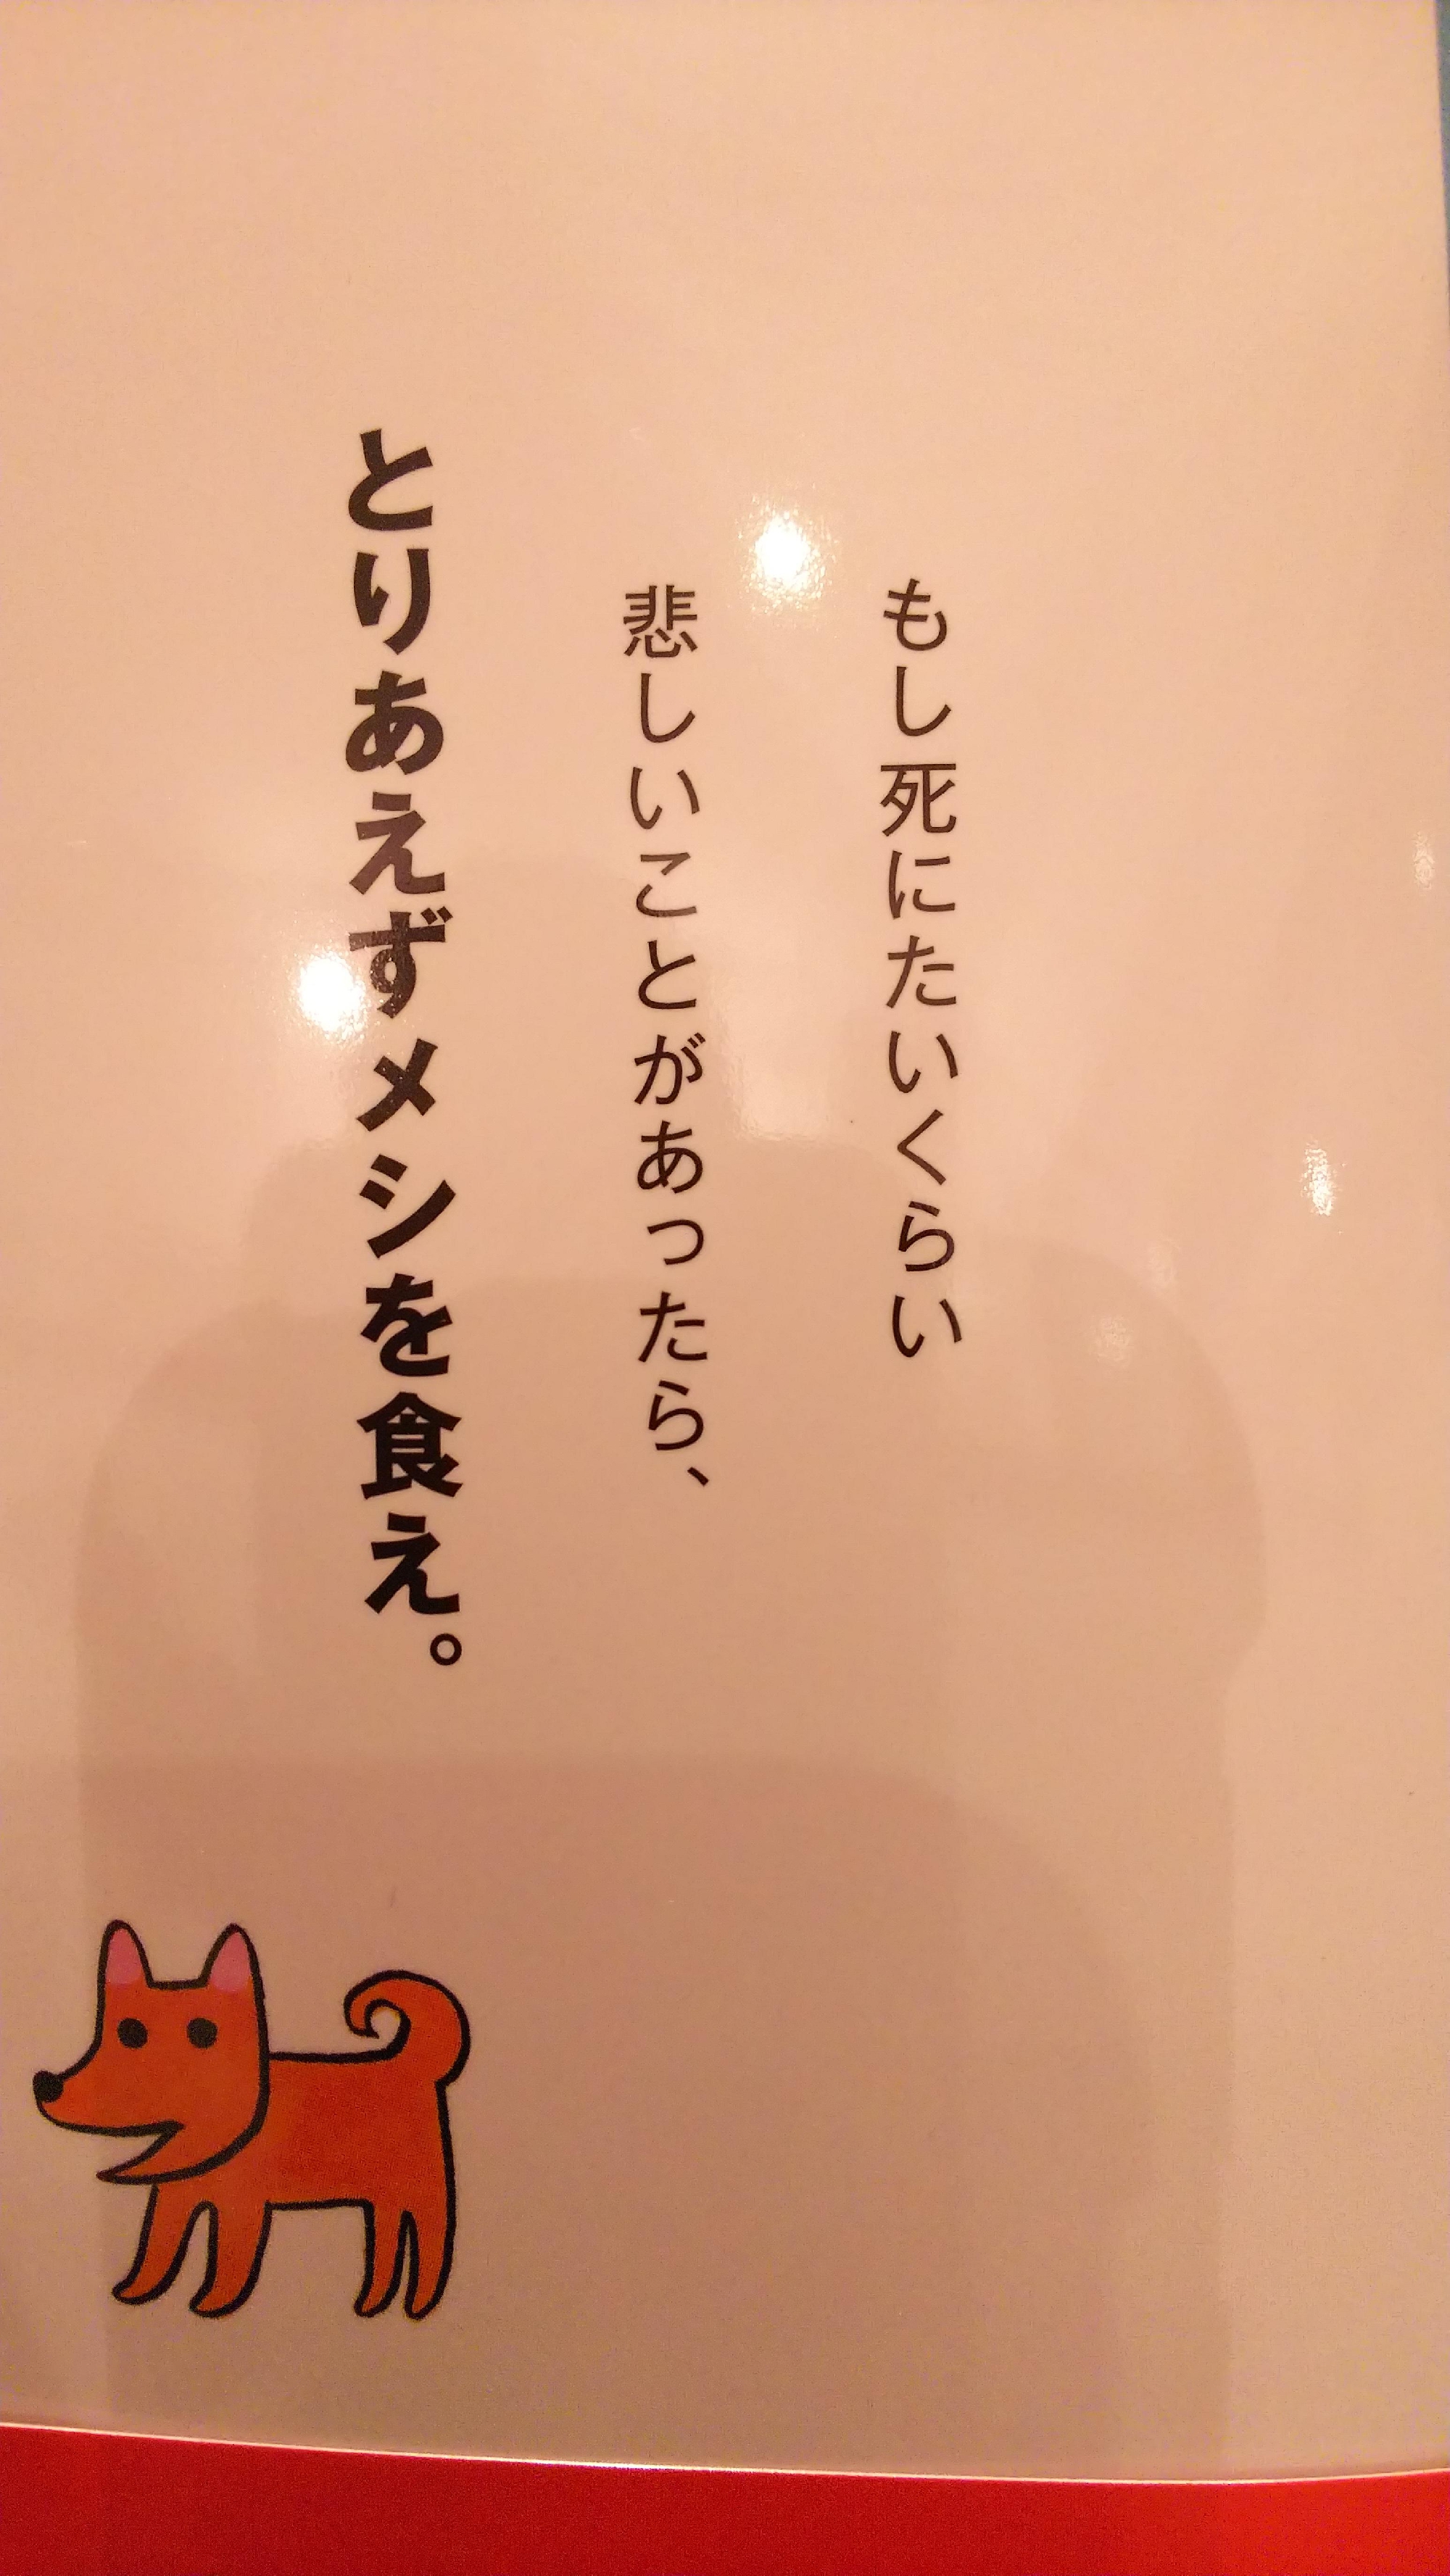 もし死にたいくらい
悲しいことがあったら、
とりあえずメシを食え。